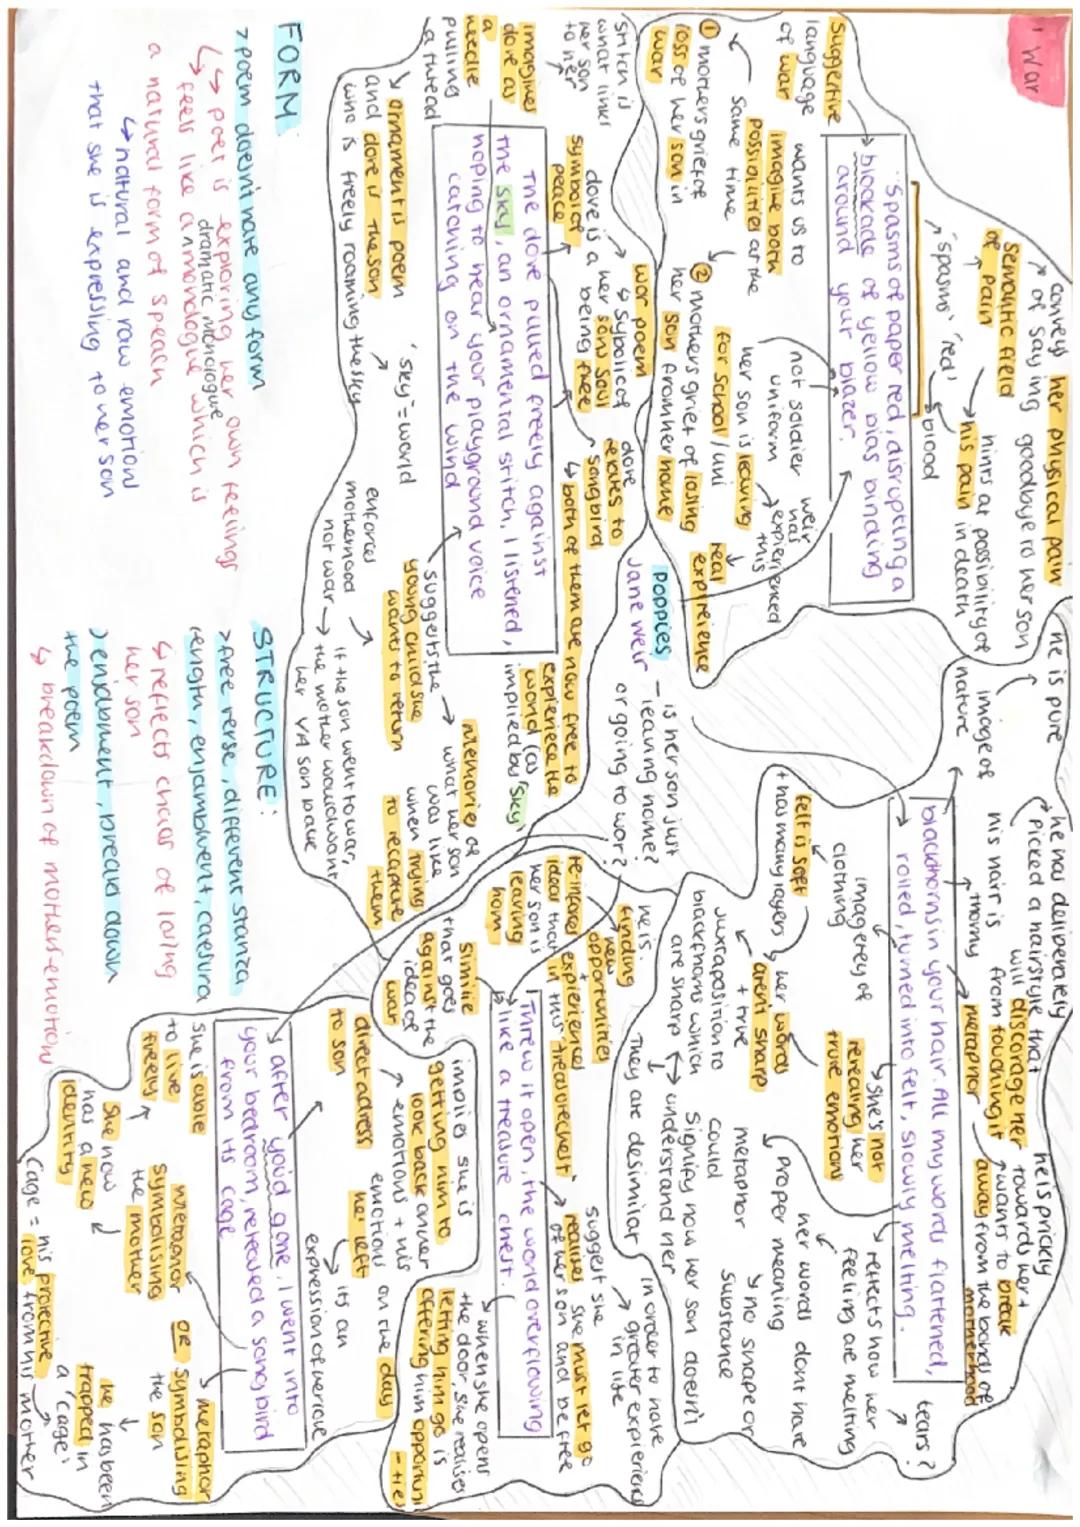 War
Suggestive
language
of war
conveys her physical pain
of saying
goodbye to her son
semantic field
of pain
hints at possibility of
his pain in death
"spasms" "red"
blood
"Spasms of paper red, disrupting a
blockade of yellow bias binding
around your blazer.
wants us to
imagine both
possibilities at the
same time
① mothers grief of
loss of her son in
war
② mothers grief of losing
her son from her home
not soldier
uniform
her son is leaving
for school/uni
weir
has
experienced
this
real
expirience
he is pure
image of
nature
he has deliberately
picked a hairstyle that
will discorage her
from touching it
his hair is
thorny
metaphor
he is prickly
towards her +
wants to break
away from the bonds of
motherhood
blackthorns in your hair. All my words flattened,
rolled, turned into felt, slowly melting.
tears?
imagerey of
clothing
felt is soft
+ has many layers
she's not
revealing her
true emotions
her words
+ true
aren't sharp
juxtaposition to
blackthorns which
are sharp
They are desimilar
reflects how her
feeling are melting
her words dont have
proper meaning
metaphor
no shape or
substance
could
signify how her son doesn't
understand her
Poppies,
Jane weir
- is her son just
leaving home?
or going to war?
stitch is
what links
her son
to her
dove is a
symbol of
peace
war poem
symbolic of
her sons soul
being free
dove
relates to
songbird
both of them are now free to
experiece the
world (as
implied by 'sky')
imagines
dove as
a
needle
pulling
a thread
The dove pulled freely against
the sky, an ornamental stitch, I listened,
hoping to hear your playground voice
catching on the wind
ornament is poem
and dove is the son
who is freely roaming the sky
'sky' = world
suggests the
young child she
wants to return
memories of
what her son
was like
when trying
to recapture
them
enforces
motherhood
not war
if the son went to war,
the mother would want
her YA son back
he is
finding
new
opportunities
+
expiriences
in this 'treasure chest'
re-inforces
idea that
her son is
leaving
hom
simile
that goes
against the
idea of
war
Threw it open, the world overflowing
like a treasure chest.
in order to have
greater expirience
in life
suggest she
realises she must let go
of her son and be free
when she opens
the door, she realises
letting him go is
offering him opportuni
-ties
implies she is
getting him to
look back on her
emotions + his
emotions on the day
he left
direct adress
to son
its an
expression of her love
after you'd gone, I went into
your bedroom, released a song bird
from its cage
she is able
to live
freely
metaphor
symbolising
the mother
OR
metaphor
symbolising
the son
she now
has a new
identity
he has been
trapped in
a 'cage'
cage = his protective
love from his mother
FORM
> poem doesn't have any form
poet is exploring her own feelings
feels like a dramatic monologue which is
a natural form of speach
natural and raw emotion
that she is expressing to her son
STRUCTURE:
> free verse, different stanza
length, enjambment, caesura
reflects chaos of losing
her son
> enjabment, breaks down
the poem
breakdown of mothers emotion